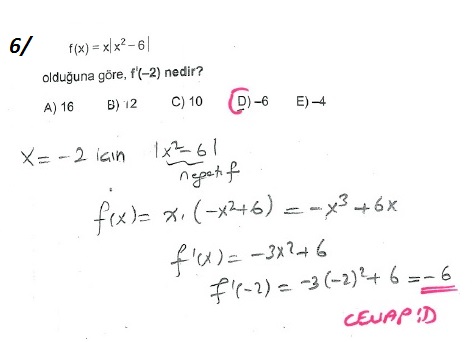 6/ f(x) = x|x² – 6|
olduğuna göre, f'(–2) nedir?
A) 16 B) 12 C) 10 D) –6 E) –4
x = -2 için |x² - 6|
negatif
f(x) = x. (-x²+6) = -x³ + 6x
f'(x) = -3x² + 6
f'(-2) = -3(-2)² + 6 = -6
CEVAP: D